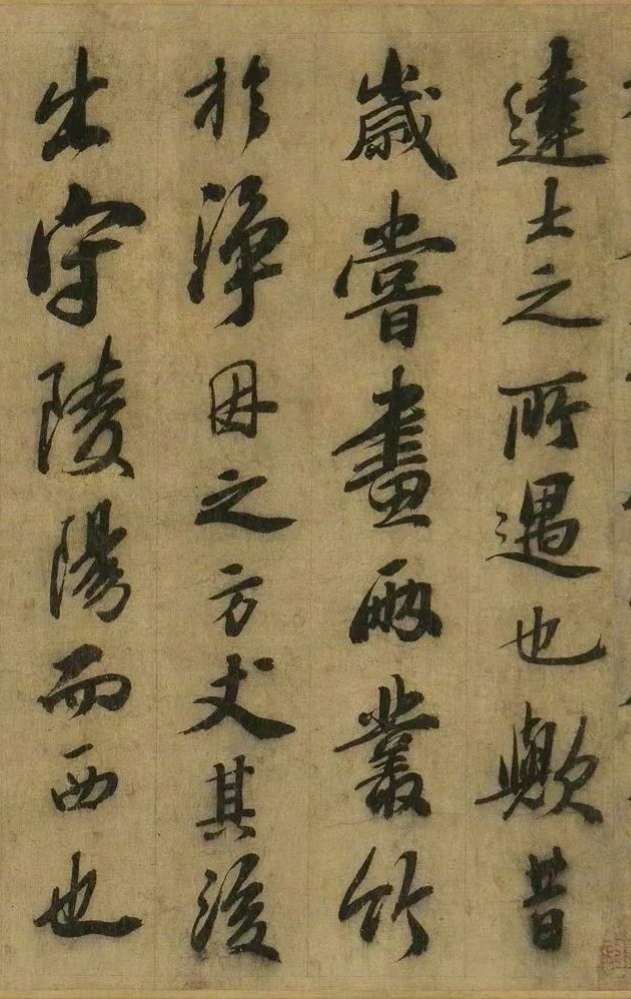 達士之所遇也歟昔
歲嘗畫兩叢竹
於淨因之方丈其後
出守陵陽而西也